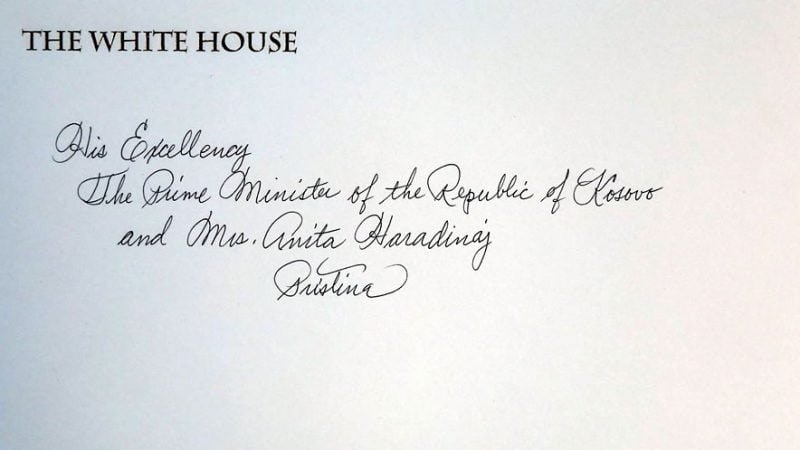 THE WHITE HOUSE
His Excellency
The Prime Minister of the Republic of Kosovo
and Mrs. Anita Haradinaj
Pristina